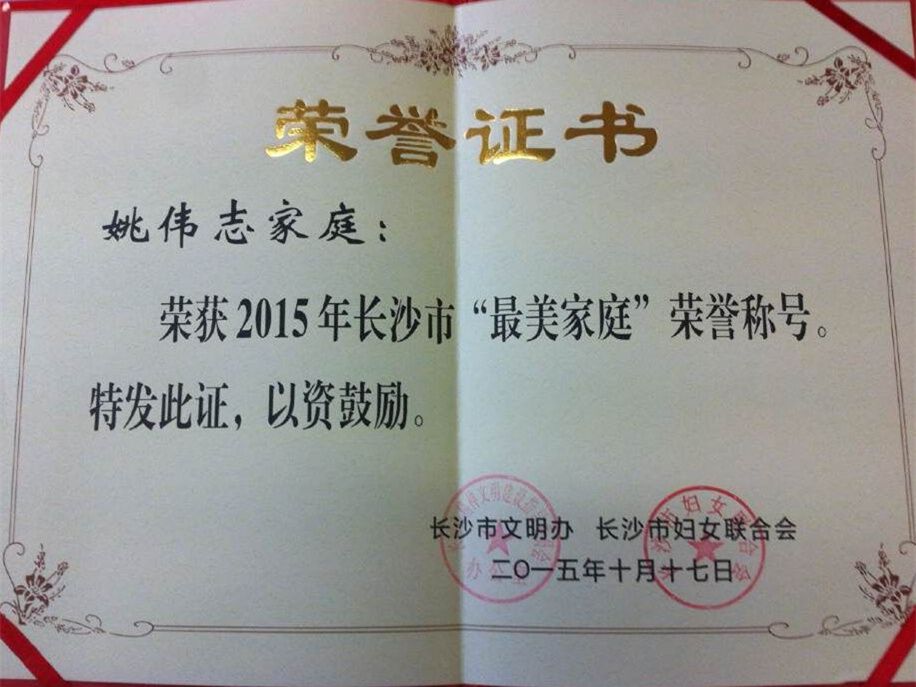 荣誉证书
姚伟志家庭：
荣获2015年长沙市“最美家庭”荣誉称号。
特发此证，以资鼓励。
长沙市文明办 长沙市妇女联合会
二〇一五年十月十七日